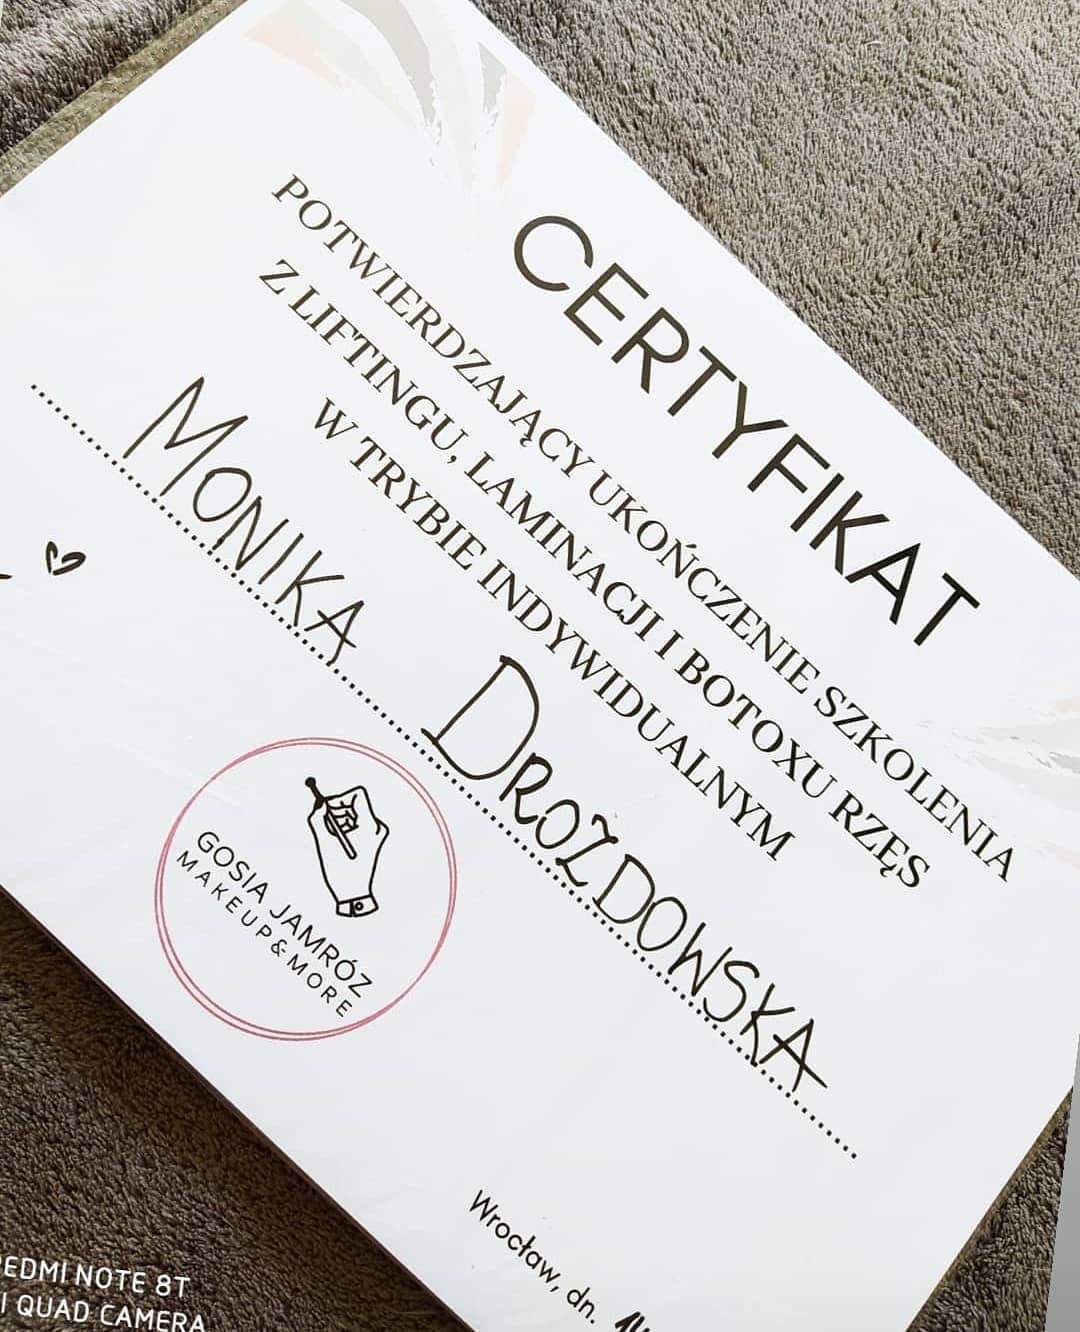 CERTYFIKAT
POTWIERDZAJĄCY UKOŃCZENIE SZKOLENIA
Z LIFTINGU, LAMINACJI I BOTOXU RZĘS
W TRYBIE INDYWIDUALNYM
MONIKA DROZDOWSKA
GOSIA JAMRÓZ
MAKEUP&MORE
Wrocław, dn.
EDMI NOTE 8T
I QUAD CAMERA